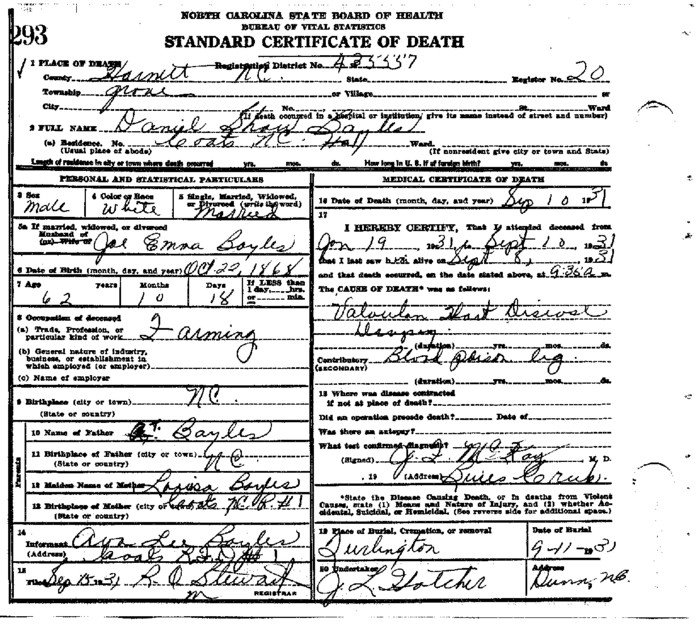 NORTH CAROLINA STATE BOARD OF HEALTH
BUREAU OF VITAL STATISTICS
293
STANDARD CERTIFICATE OF DEATH
1 PLACE OF DEATH Registration District No.
County Harnett N.C. State Register No. 20
Township Grove or Village or
City No. St. Ward
(If death occurred in a hospital or institution, give its name instead of street and number)
2 FULL NAME Daniel Shaw Bayles
(a) Residence. No. Coats N.C. Ward.
(Usual place of abode) (If nonresident give city or town and State)
Length of residence in city or town where death occurred yrs. mos. ds. How long in U. S. if of foreign birth? yrs. mos. ds.
PERSONAL AND STATISTICAL PARTICULARS
3 Sex 4 Color or Race 5 Single, Married, Widowed, or Divorced (write the word)
Male White Married
5a If married, widowed, or divorced
Husband of
(or) Wife of Joe Emma Bayles
6 Date of Birth (month, day, and year) Oct 22, 1868
7 Age years Months Days If LESS than
1 day, hrs.
or min.
62 10 18
8 Occupation of deceased
(a) Trade, Profession, or
particular kind of work Farming
(b) General nature of industry,
business, or establishment in
which employed (or employer)
(c) Name of employer
9 Birthplace (city or town) N.C.
(State or country)
Parents
10 Name of Father Bayles
11 Birthplace of Father (city or town) N.C.
(State or country)
12 Maiden Name of Mother Bayles
13 Birthplace of Mother (city or Coats N.C. R #1
(State or country)
14
Informant Lee Bayles
(Address) Coats R.F.D. #1
15
Filed Sep 15 1931 R. O. Stewart
REGISTRAR
MEDICAL CERTIFICATE OF DEATH
16 Date of Death (month, day, and year) Sep 10 1931
17
I HEREBY CERTIFY, That I attended deceased from
Jan 19 1931, to Sept 10, 1931
that I last saw him alive on Sept 8, 1931
and that death occurred, on the date stated above, at 9:35 a m.
The CAUSE OF DEATH* was as follows:
Valvular Hart Disease
(duration) yrs. mos. ds.
Contributory Blood poison leg
(SECONDARY)
(duration) yrs. mos. ds.
18 Where was disease contracted
if not at place of death?
Did an operation precede death? Date of
Was there an autopsy?
What test confirmed diagnosis?
(Signed) McKay, M. D.
, 19 (Address) Buies Creek
*State the Disease Causing Death, or in deaths from Violent
Causes, state (1) Means and Nature of Injury, and (2) whether Ac-
cidental, Suicidal, or Homicidal. (See reverse side for additional space.)
19 Place of Burial, Cremation, or removal Date of Burial
Turlington 9-11-1931
20 Undertaker Address
J. L. Hatcher Dunn, N.C.